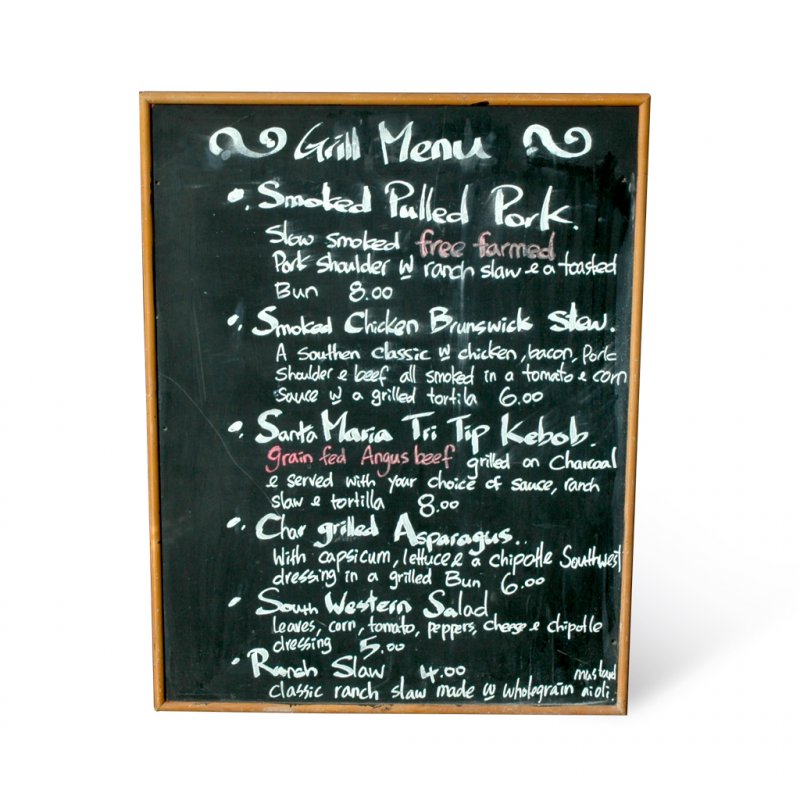 Grill Menu
• Smoked Pulled Pork.
Slow smoked free farmed
Pork shoulder w ranch slaw & a toasted
Bun 8.00
• Smoked Chicken Brunswick Stew.
A southen classic w chicken, bacon, Pork
Shoulder & beef all smoked in a tomato & corn
sauce w a grilled tortila 6.00
• Santa Maria Tri Tip Kebob.
grain fed Angus beef grilled on Charcoal
& served with your choice of sauce, ranch
slaw & tortilla 8.00
• Char grilled Asparagus..
With capsicum, lettuce & a chipotle Southwest
dressing in a grilled Bun 6.00
• South Western Salad
leaves, corn, tomato, peppers, cheese & chipotle
dressing 5.00
• Ranch Slaw 4.00
classic ranch slaw made w wholegrain mustard aioli.